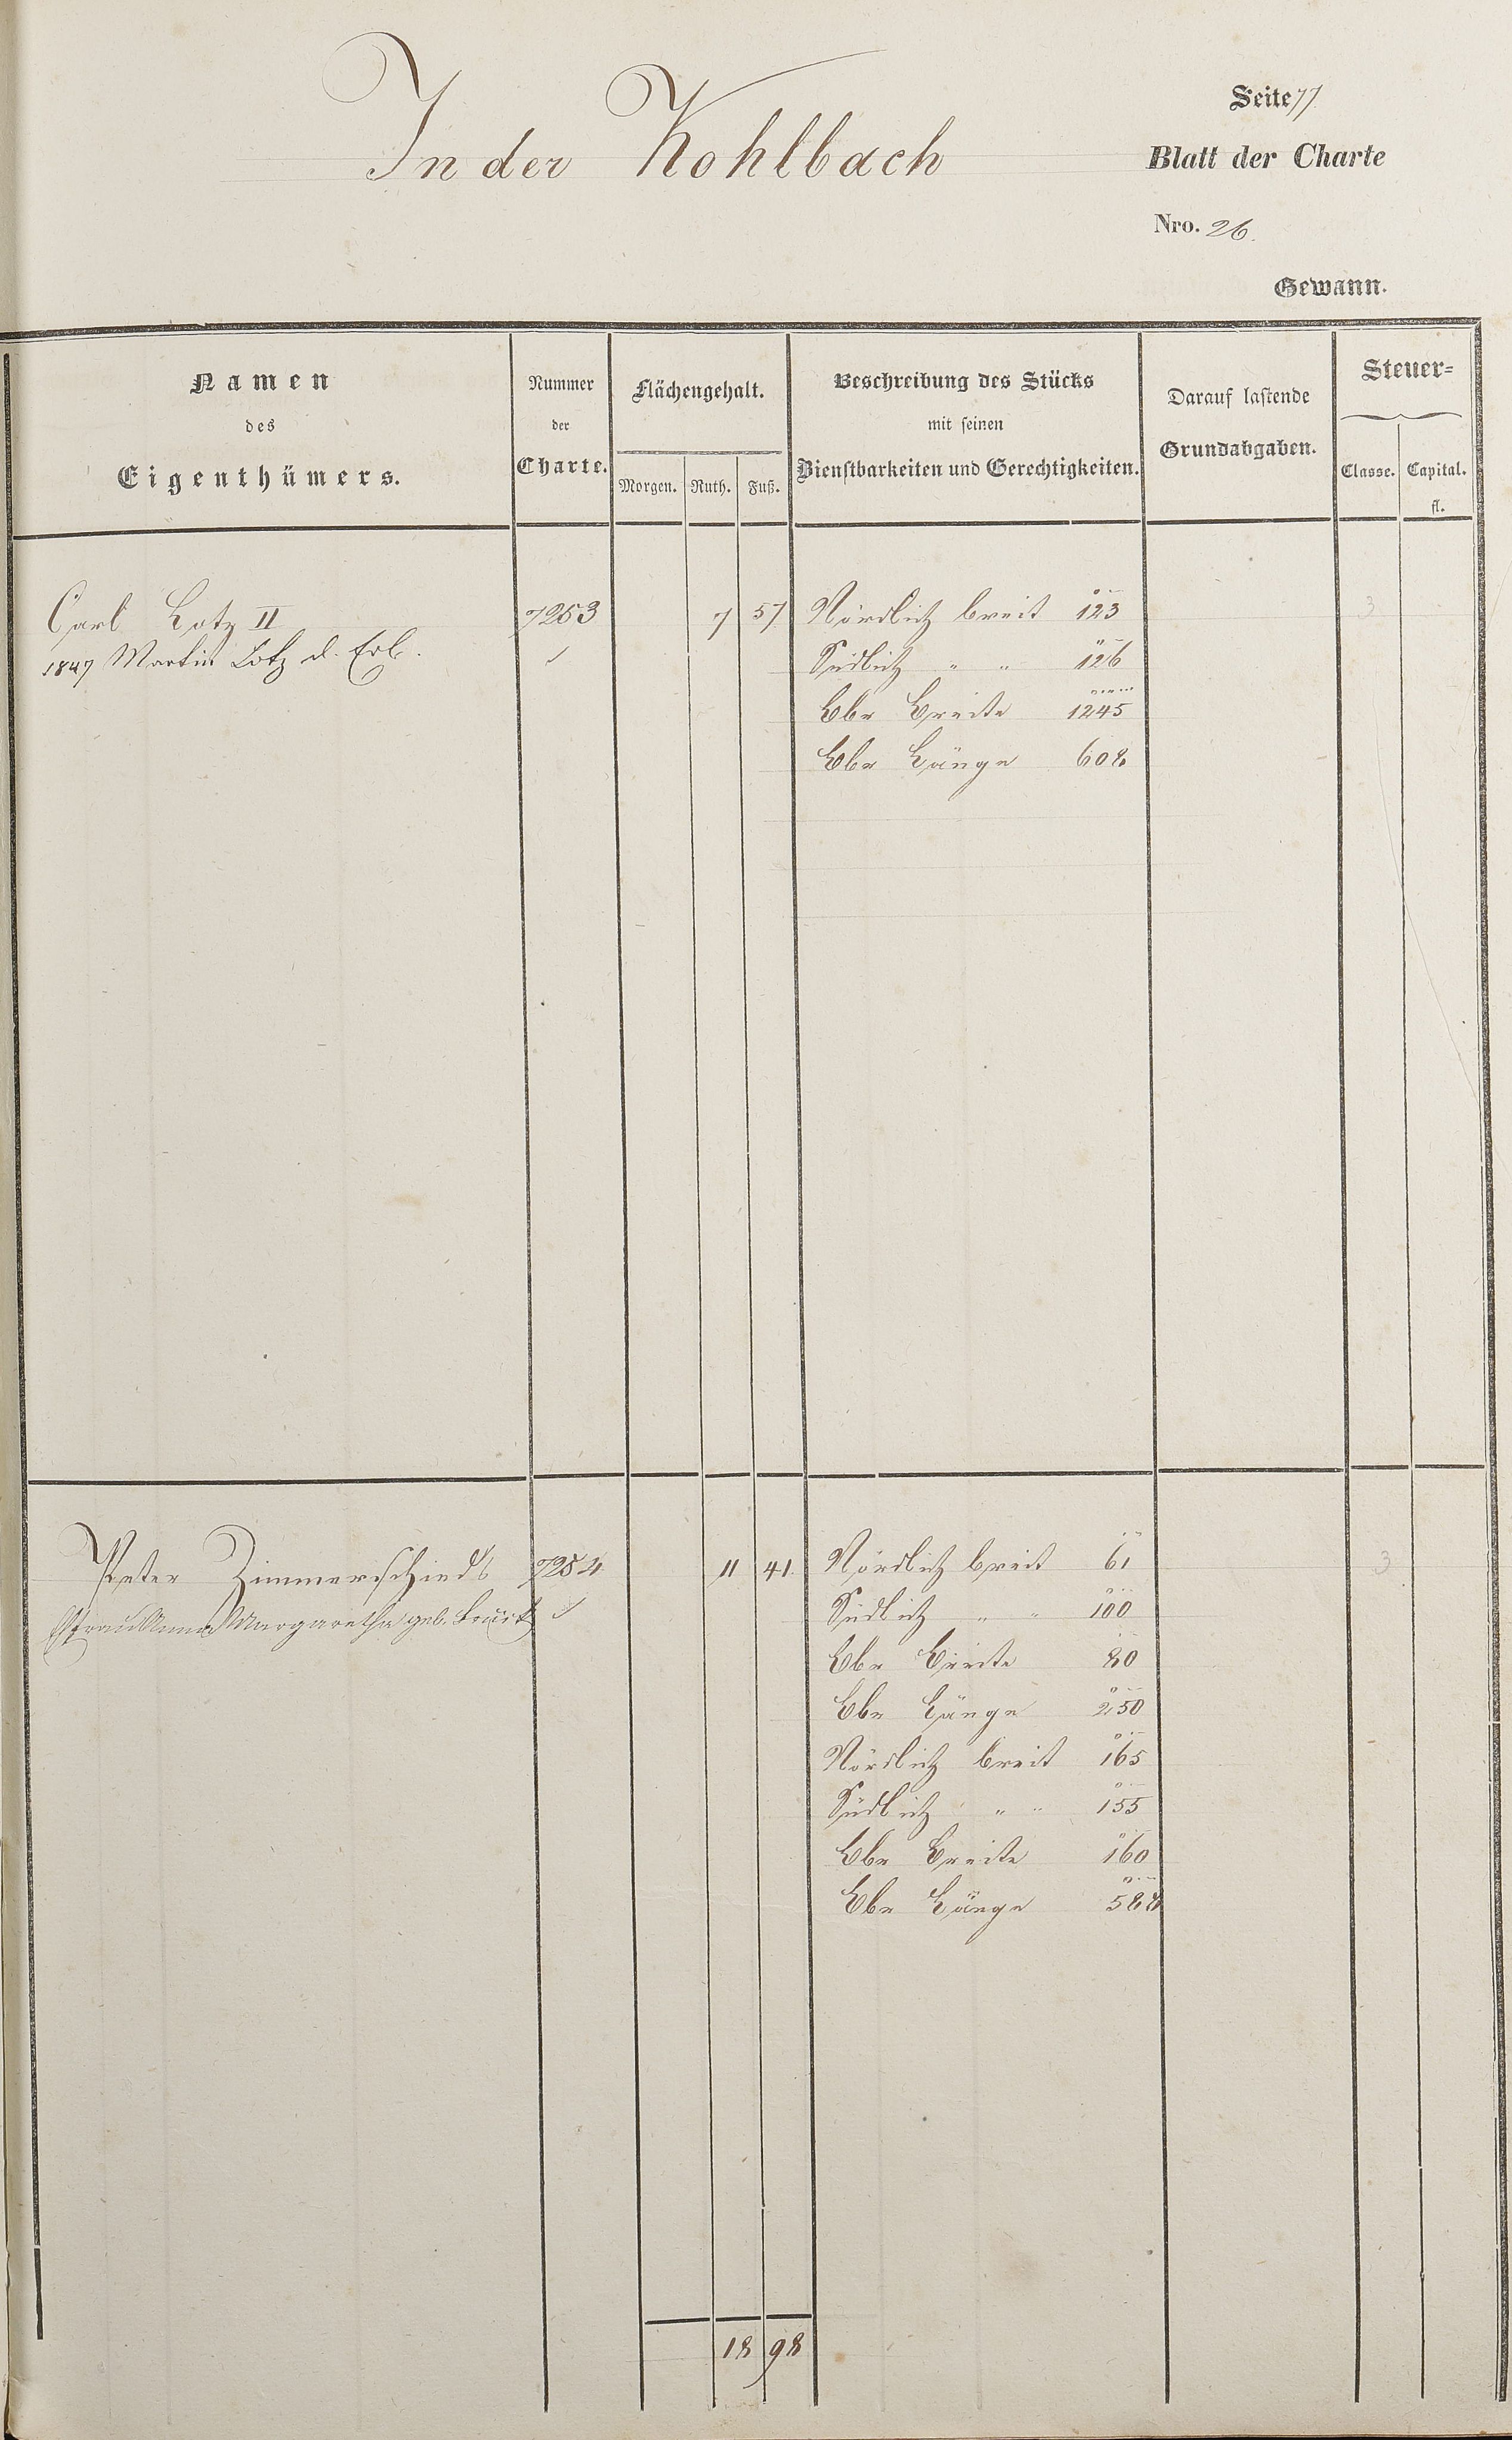 In der Kohlbach
Seite 77
Blatt der Charte
Nro. 26.
Gewann.
Namen
des
Eigenthümers.
Nummer
der
Charte.
Flächengehalt.
Morgen. Ruth. Fuß.
Beschreibung des Stücks
mit seinen
Dienstbarkeiten und Gerechtigkeiten.
Darauf lastende
Grundabgaben.
Steuer=
Classe. Capital.
fl.
Carl Lotz II 7253 7 57 Nördlich breit 123 3
1847 Martin Lotz d. Erb. ✓ Südlich " " 126
Ebe Breite 1245
Ebe Länge 608
Peter Zimmerschieds 7254 11 41. Nördlich breit 61 3
Ehfrau Anna Margaretha geb. ✓ Südlich " " 100
Ebe Breite 80
Ebe Länge 250
Nördlich breit 165
Südlich " " 155
Ebe Breite 160
Ebe Länge 588
18 98